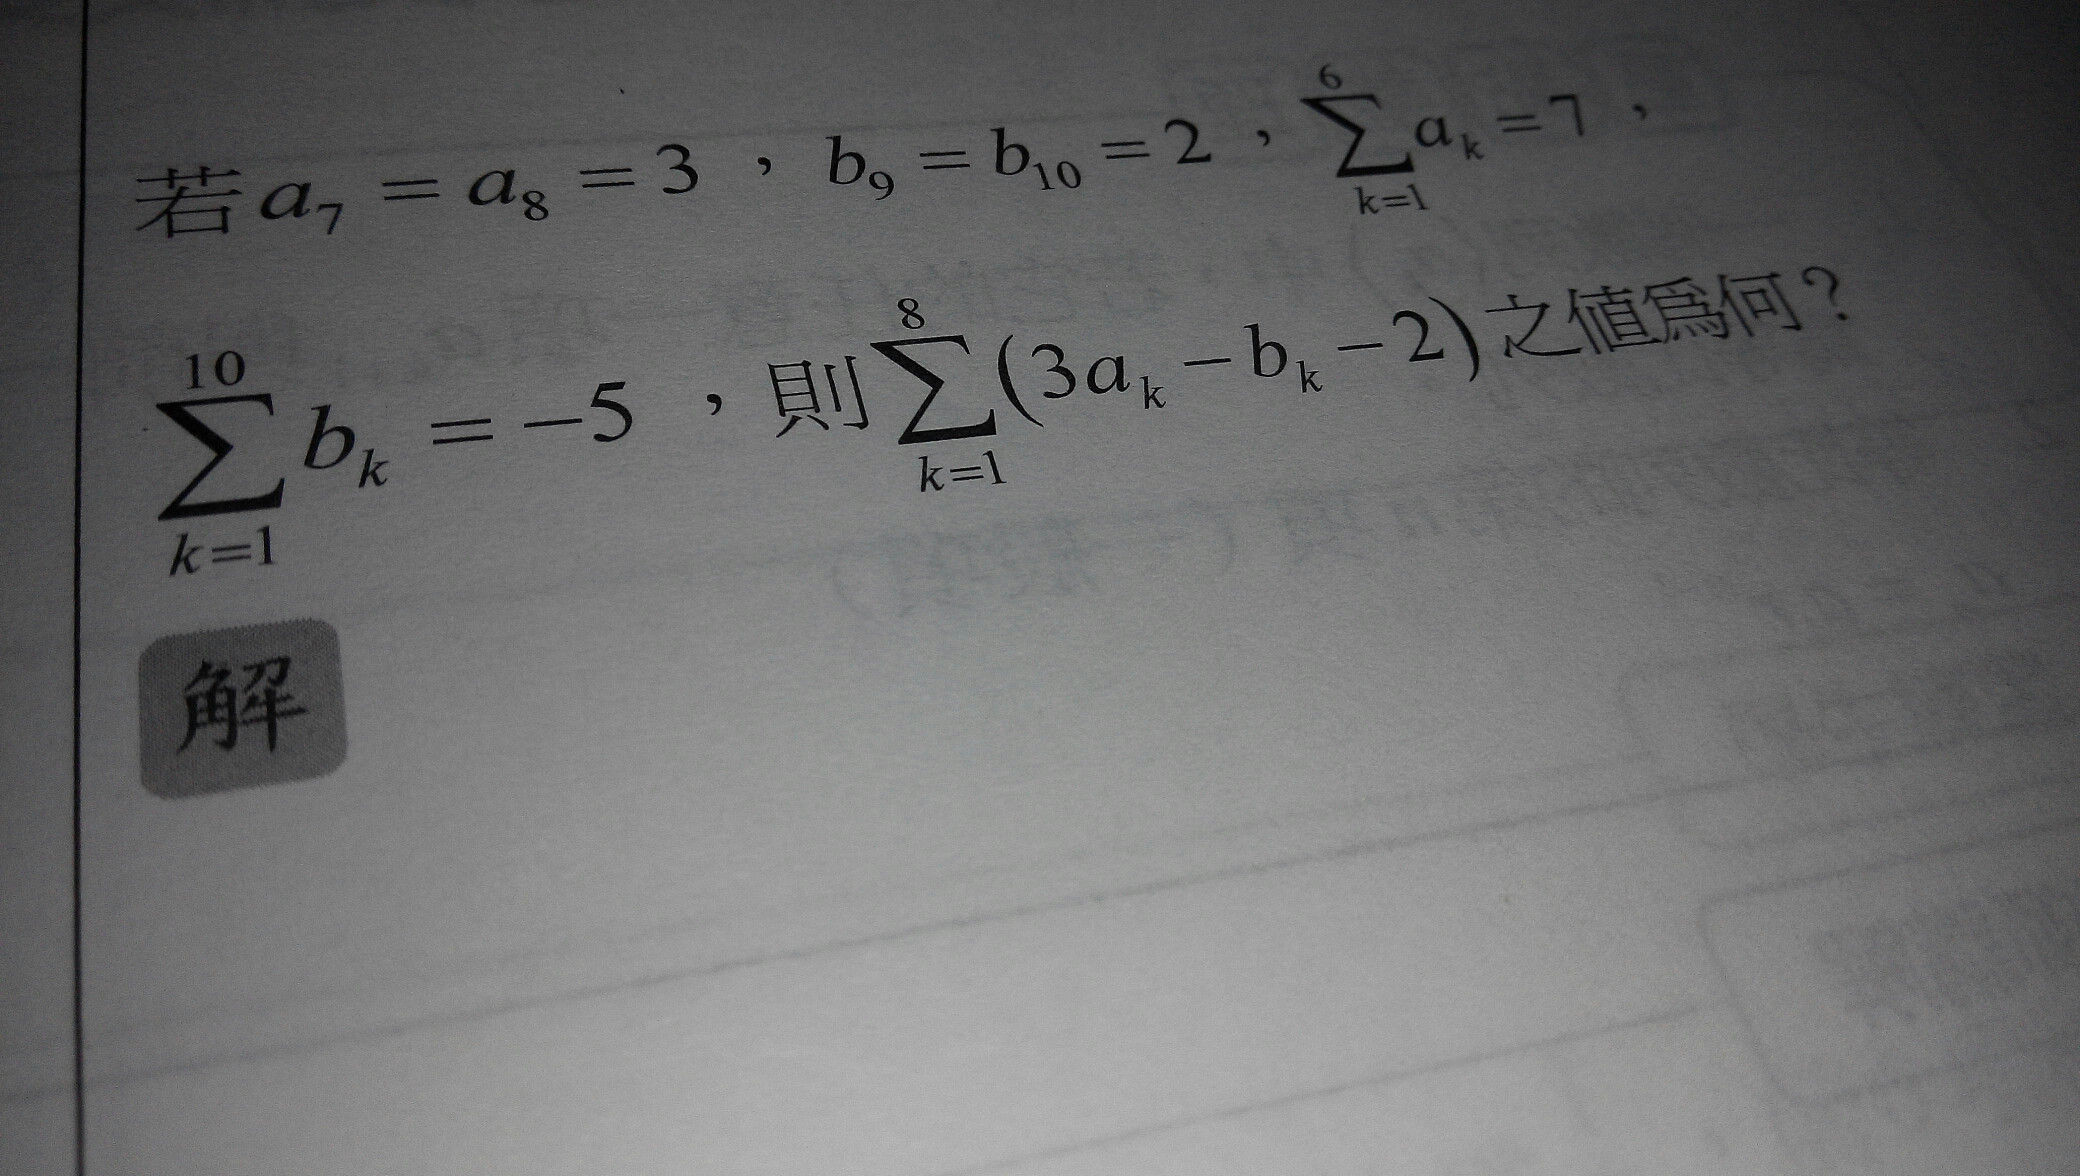 若 a₇ = a₈ = 3，b₉ = b₁₀ = 2，∑_{k=1}^{6} a_k = 7，
∑_{k=1}^{10} b_k = −5，則 ∑_{k=1}^{8} (3a_k − b_k − 2) 之值為何？
解